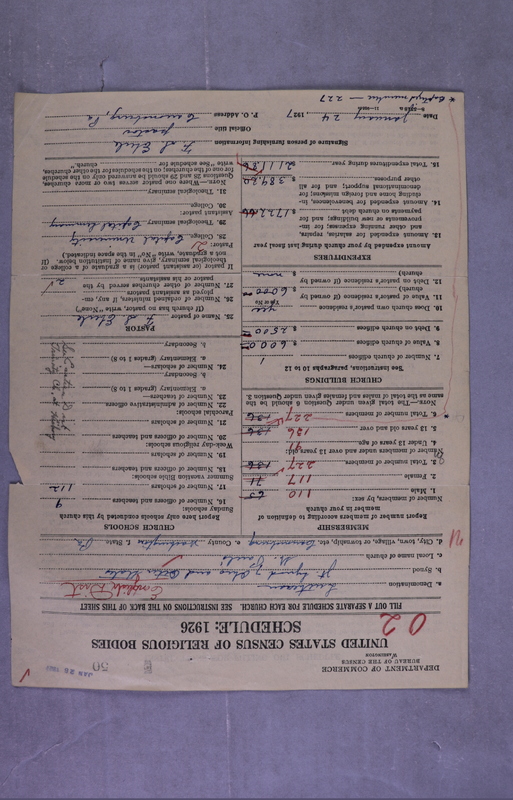 DEPARTMENT OF COMMERCE
BUREAU OF THE CENSUS
WASHINGTON
50
JAN 26 1927
UNITED STATES CENSUS OF RELIGIOUS BODIES
SCHEDULE: 1926
02
FILL OUT A SEPARATE SCHEDULE FOR EACH CHURCH. SEE INSTRUCTIONS ON THE BACK OF THIS SHEET
a. Denomination Lutheran English Dist
b. Synod Jt. Synod of Ohio and Other States
c. Local name of church St. Paul's
d. City, town, village, or township, etc. Canonsburg e. County Washington f. State Pa
MEMBERSHIP
Report number of members according to definition of member in your church
Number of members, by sex:
1. Male 110 65
2. Female 117 71
3. Total number of members 227 136
Number of members under and over 13 years old:
4. Under 13 years of age 91
5. 13 years old and over 136 136
6. Total number of members 227 136
NOTE.—The total given under Question 6 should be the same as the total of males and females given under Question 3.
CHURCH BUILDINGS
See instructions, paragraphs 10 to 12
7. Number of church edifices 1
8. Value of church edifices $ 60000
9. Debt on church edifices $ 2500
10. Does pastor have a residence yes
11. Value of residence (if owned by church) $ 6000
12. Debt on residence (if owned by church) $ none
EXPENDITURES
Amount expended by your church during last fiscal year
13. Amount expended for salaries, repairs, and other running expenses; for improvements or new buildings; and for payments on church debt
14. Amount expended for benevolences, including home and foreign missions; for denominational support; and for all other purposes $ 384.20
15. Total expenditures during year
CHURCH SCHOOLS
Report here only schools conducted by this church
Sunday schools:
16. Number of officers and teachers 9
17. Number of scholars 112
Summer vacation Bible schools:
18. Number of officers and teachers
19. Number of scholars
Week-day religious schools:
20. Number of officers and teachers
21. Number of scholars
Parochial schools:
22. Number of administrative officers
23. Number of teachers—
a. Elementary (grades 1 to 8)
b. Secondary
24. Number of scholars—
a. Elementary (grades 1 to 8)
b. Secondary
PASTOR
25. Name of pastor
(If church has no pastor, write "None")
26. Number of ordained ministers, if any, employed as assistant pastors
27. Number of other churches served by the pastor or his assistants 2
If pastor (or assistant pastor) is a graduate of a college or theological seminary, give name of institution below. (If not a graduate, write "No" in the space indicated.)
Pastor:
28. College Capital University
29. Theological seminary Capital Seminary
Assistant pastor:
30. College
31. Theological seminary
NOTE.—Where one pastor serves two or more churches, Questions 28 and 29 should be answered only on the schedule for one of the churches; on the schedules for the other churches, write "See schedule for church."
Signature of person furnishing information
Official title pastor
P. O. Address Canonsburg, Pa
Date January 24 1927
* Baptized members — 227